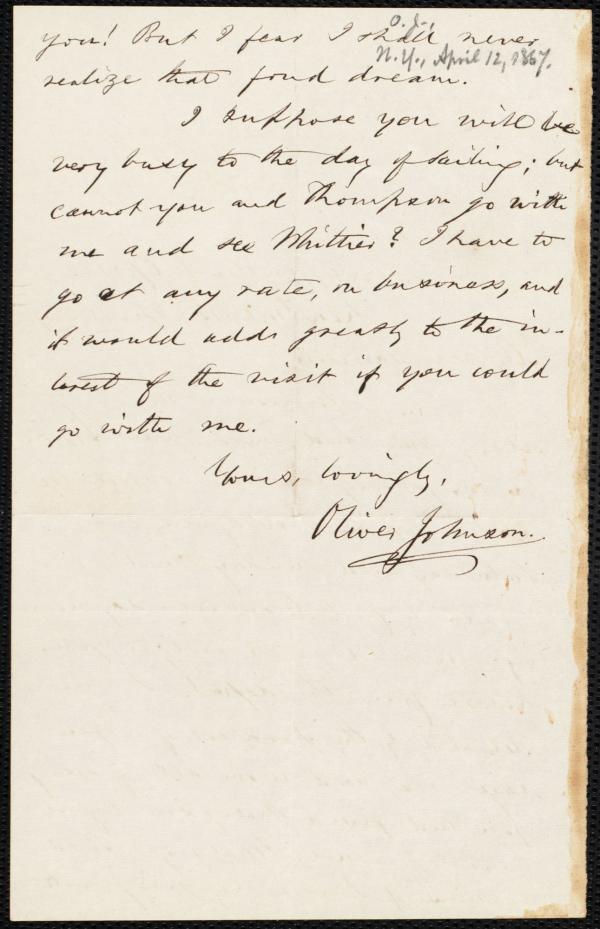 O. J.,
N. Y., April 12, 1867.
you! But I fear I shall never
realize that fond dream.
I suppose you will be
very busy to the day of sailing; but
cannot you and Thompson go with
me and see Whittier? I have to
go at any rate, on business, and
it would add greatly to the in-
terest of the visit if you could
go with me.
Yours, lovingly,
Oliver Johnson.